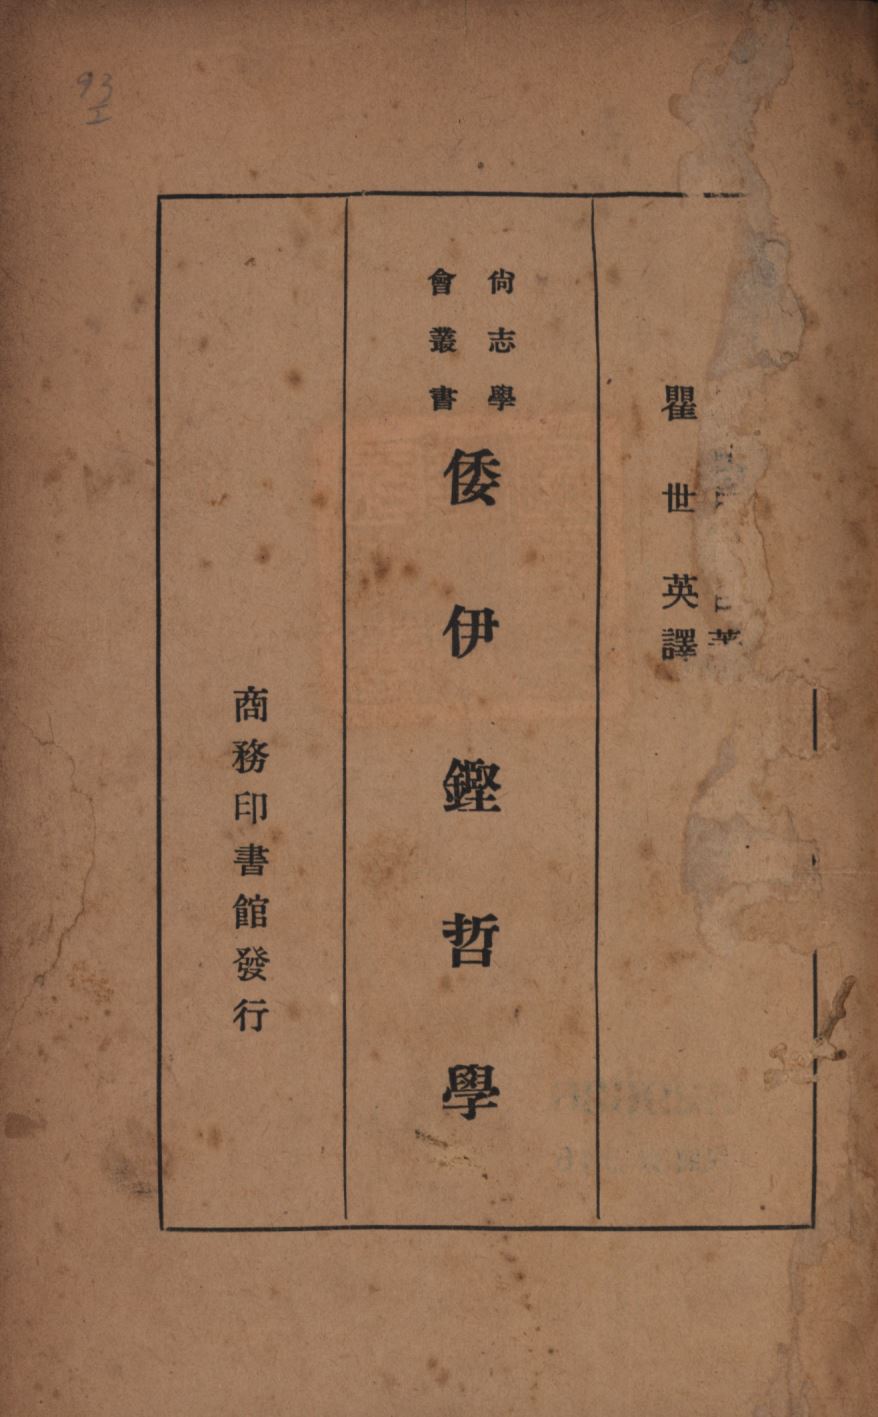 著
瞿世英譯
尙志學
會叢書
倭伊鏗哲學
商務印書館發行
93
I